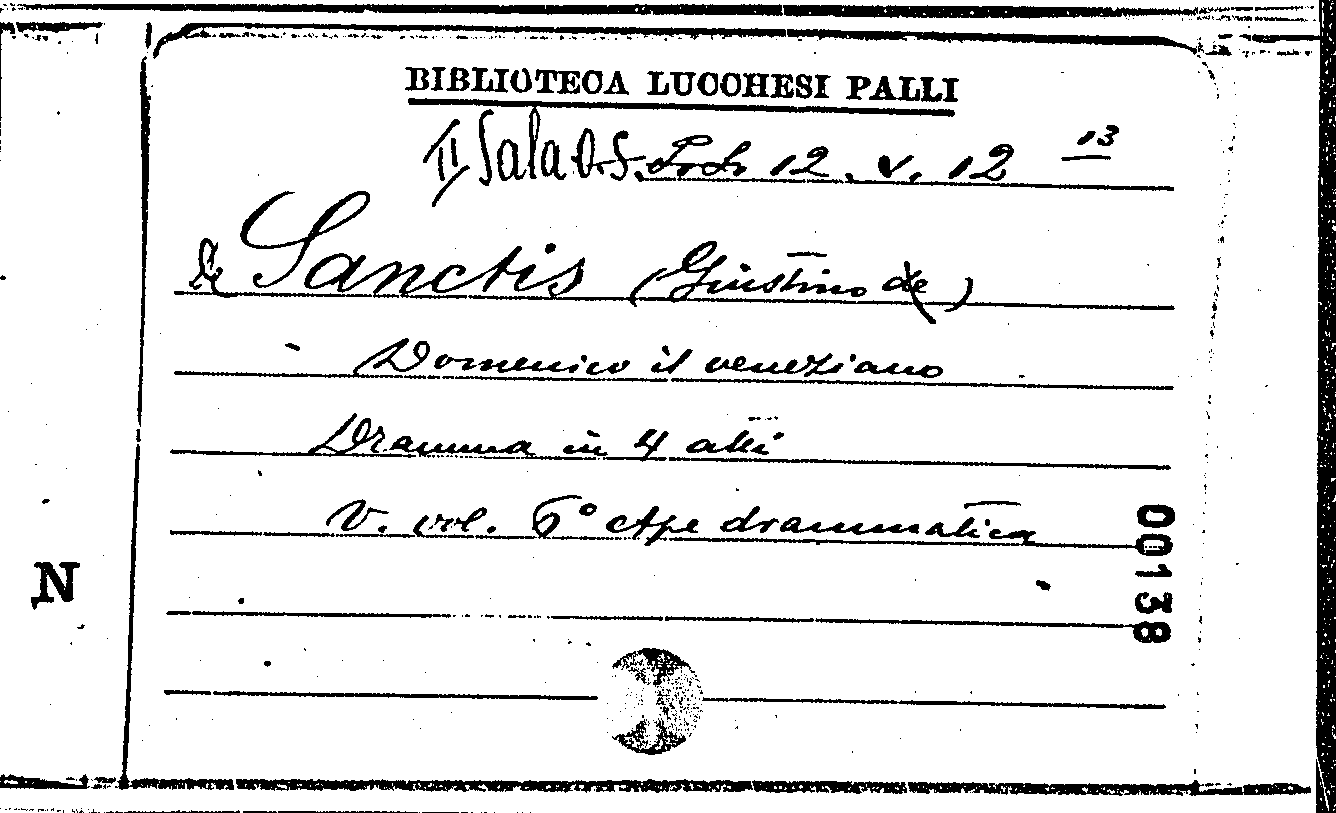 BIBLIOTECA LUCCHESI PALLI
II Sala O.S. 12. v. 12 13
De Sanctis (Giustino de)
Domenico il veneziano
Dramma in 4 atti
V. vol. 6° Ape drammatica
00138
N